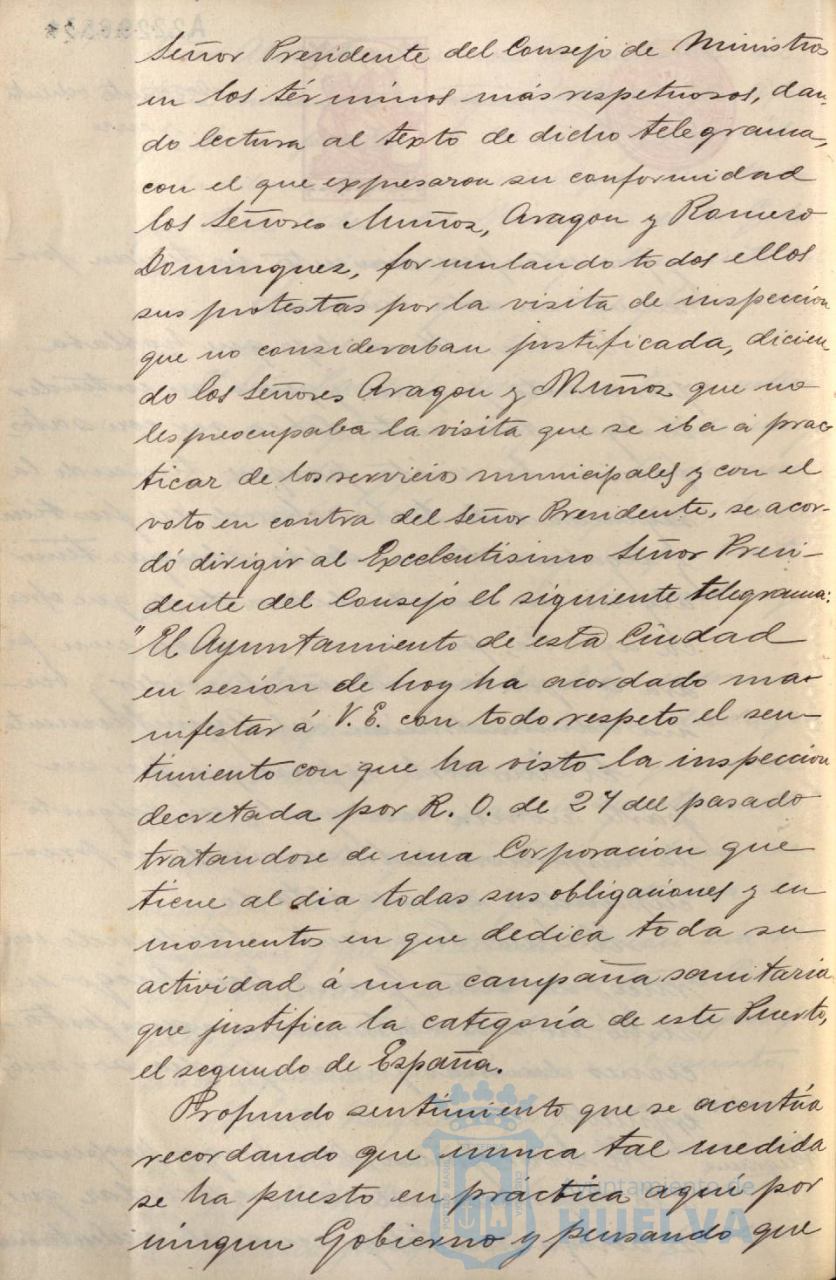 Señor Presidente del Consejo de Ministros
en los términos más respetuosos, dan-
do lectura al texto de dicho telegrama,
con el que expresaron su conformidad
los Señores Muñoz, Aragon y Romero
Dominguez, formulando todos ellos
sus protestas por la visita de inspección
que no consideraban justificada, dicien
do los Señores Aragon y Muñoz que no
les preocupaba la visita que se iba á prac
ticar de los servicios municipales y con el
voto en contra del Señor Presidente, se acor-
dó dirigir al Excelentisimo Señor Presi-
dente del Consejo el siguiente telegrama:
"El Ayuntamiento de esta Ciudad
en sesión de hoy ha acordado ma-
nifestar á V.E. con todo respeto el sen-
timiento con que ha visto la inspección
decretada por R. O. de 27 del pasado
tratandose de una Corporación que
tiene al dia todas sus obligaciones y en
momentos en que dedica toda su
actividad á una campaña sanitaria
que justifica la categoría de este Puerto,
el segundo de España.
Profundo sentimiento que se acentúa
recordando que nunca tal medida
se ha puesto en práctica aquí por
ningun Gobierno y pensando que
Ayuntamiento de
HUELVA